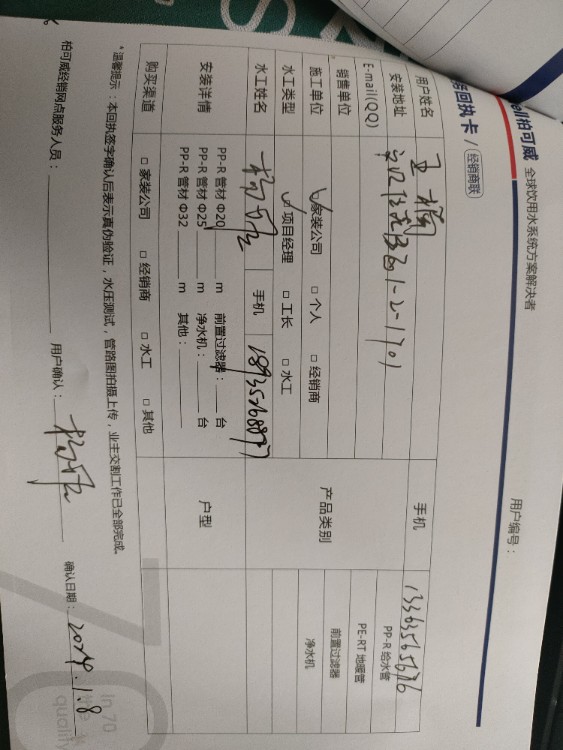 ell柏可威 全球饮用水系统方案解决者
务回执卡 / 经销商联
用户编号：
用户姓名 王楠 手机 13363565676
安装地址 1-2-1701
E-mail(QQ) 产品类别 PP-R 给水管
销售单位 PE-RT 地暖管
施工单位 家装公司 □ 个人 □ 经销商 前置过滤器
水工类型 项目经理 □ 工长 □ 水工 净水机
水工姓名 手机
安装详情 PP-R 管材 Φ20 ____ m 前置过滤器：____ 台 户型
PP-R 管材 Φ25 ____ m 净水机：____ 台
PP-R 管材 Φ32 ____ m 其他：____
购买渠道 □ 家装公司 □ 经销商 □ 水工 □ 其他
*温馨提示：本回执签字确认后表示真伪验证，水压测试，管路图拍摄上传，业主交割工作已全部完成。
柏可威经销网点服务人员： 用户确认： 确认日期：2024.1.8
70
In 70
quality